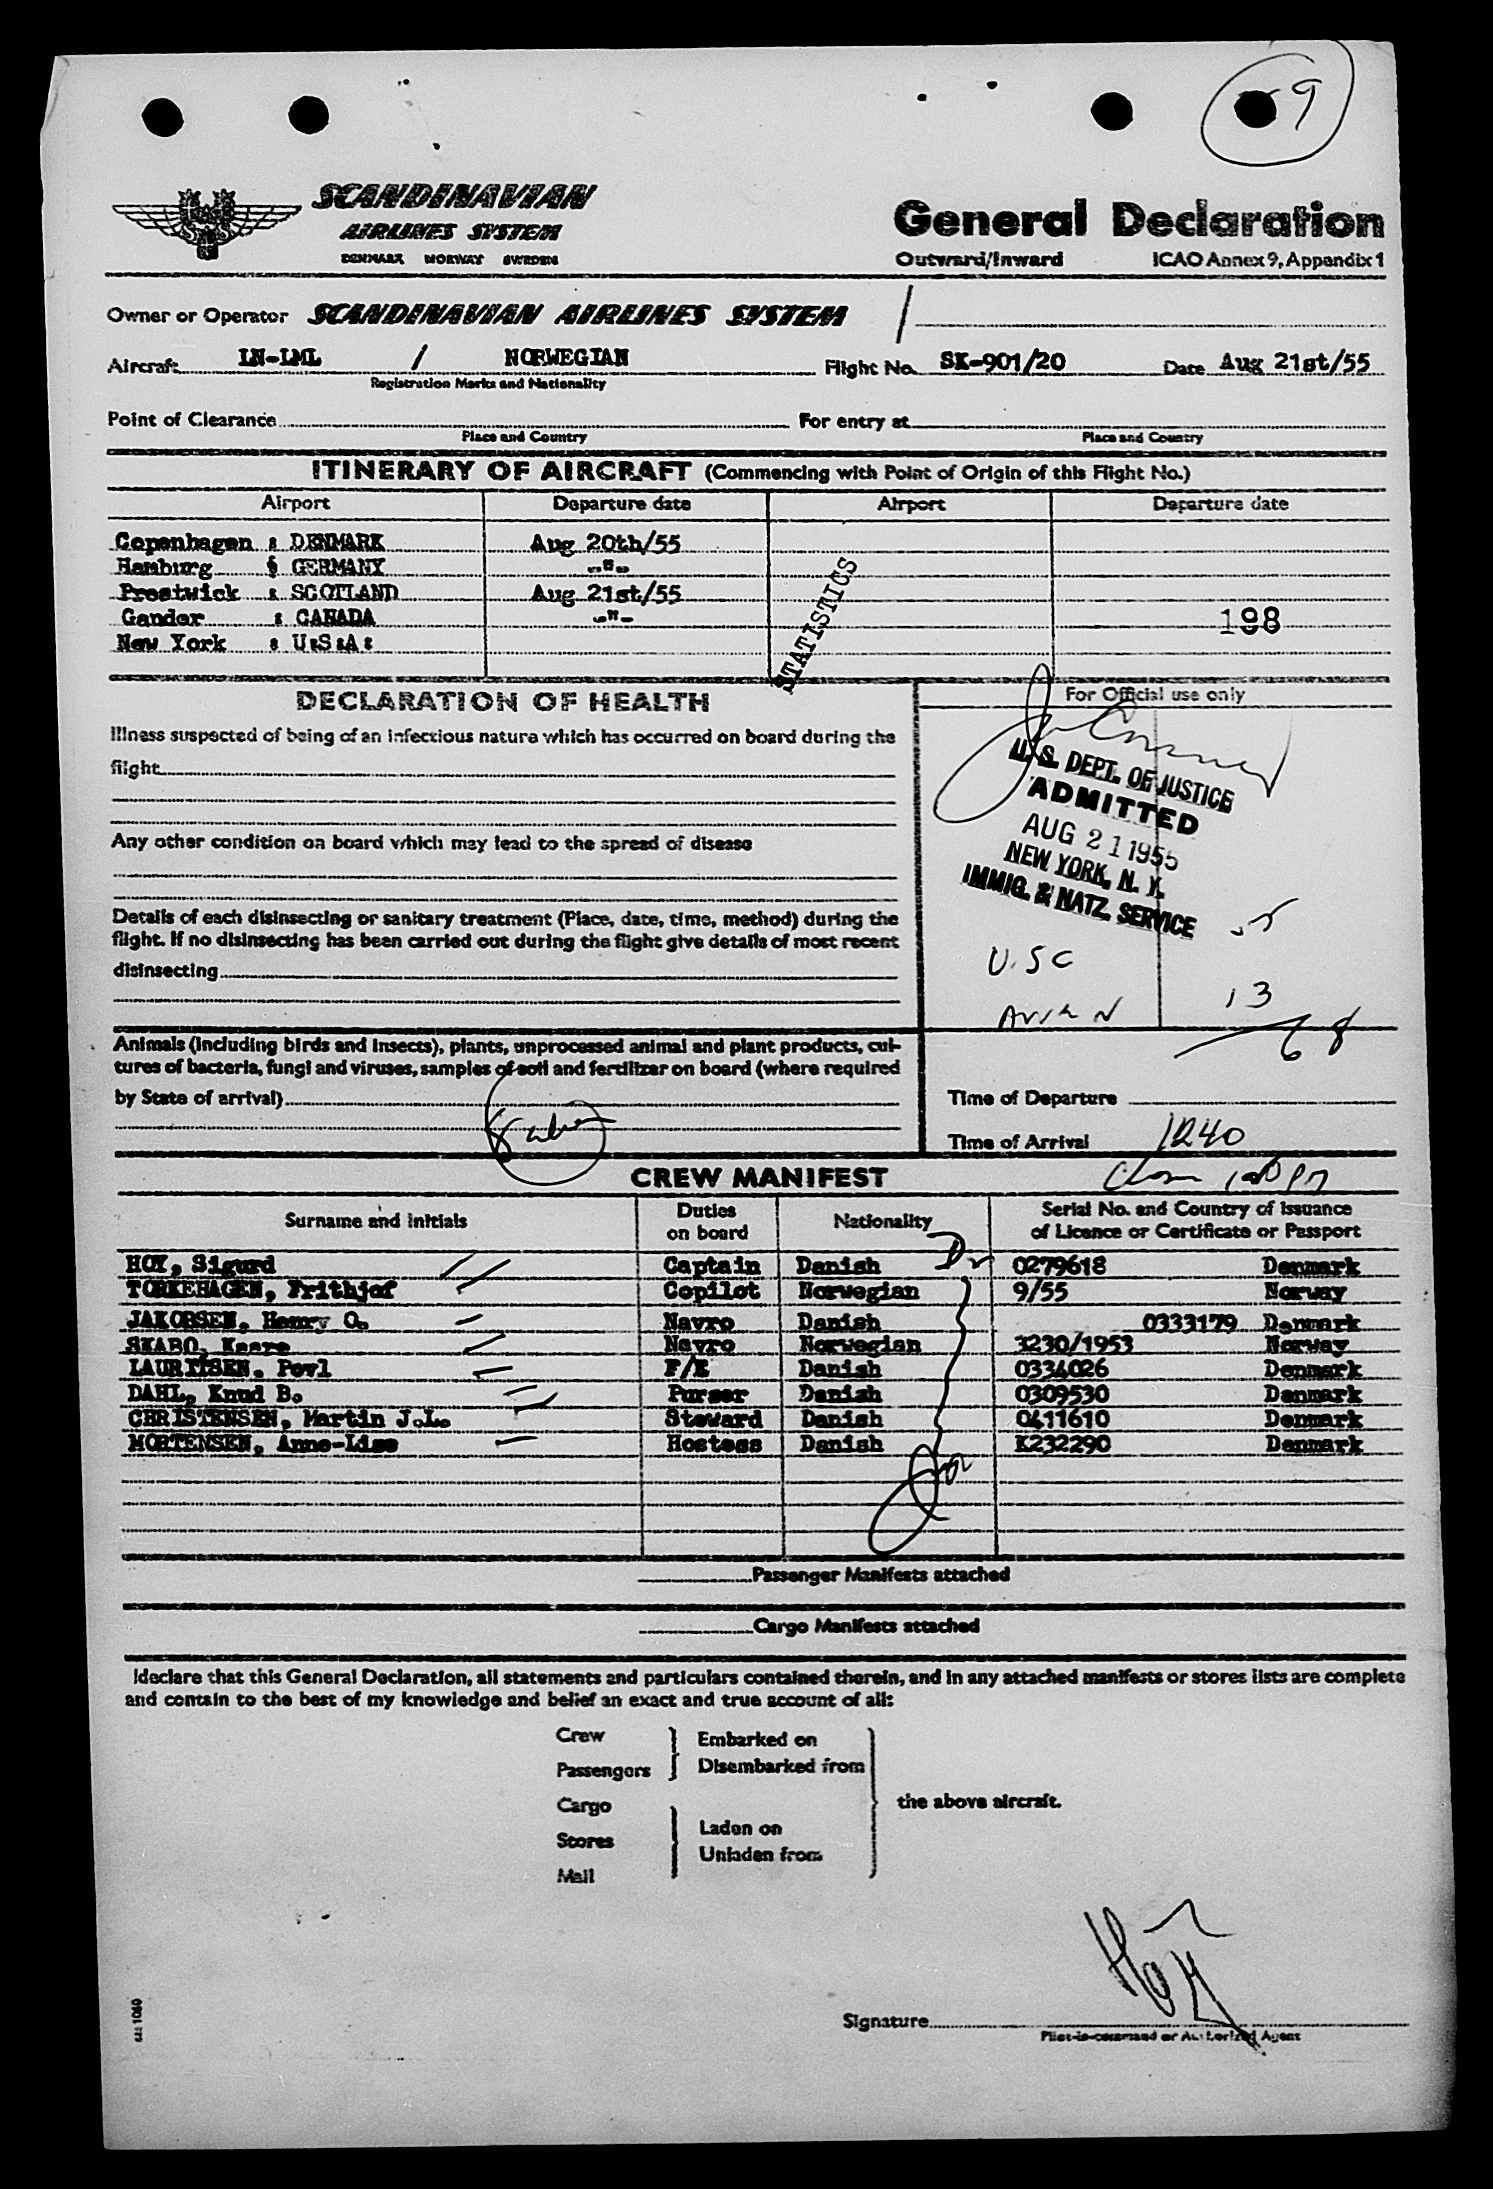 9
SCANDINAVIAN
AIRLINES SYSTEM
DENMARK NORWAY SWEDEN
General Declaration
Outward/Inward ICAO Annex 9, Appendix 1
Owner or Operator SCANDINAVIAN AIRLINES SYSTEM /
Aircraft LN-LML / NORWEGIAN Flight No. SK-901/20 Date Aug 21st/55
Registration Marks and Nationality
Point of Clearance For entry at
Place and Country Place and Country
ITINERARY OF AIRCRAFT (Commencing with Point of Origin of this Flight No.)
Airport Departure date Airport Departure date
Copenhagen : DENMARK Aug 20th/55
Hamburg : GERMANY -"-
Prestwick : SCOTLAND Aug 21st/55
Gander : CANADA -"- 198
New York : U:S:A:
STATISTICS
DECLARATION OF HEALTH
For Official use only
Illness suspected of being of an infectious nature which has occurred on board during the
flight
Any other condition on board which may lead to the spread of disease
Details of each disinsecting or sanitary treatment (Place, date, time, method) during the
flight. If no disinsecting has been carried out during the flight give details of most recent
disinsecting
U. S. DEPT. OF JUSTICE
ADMITTED
AUG 21 1955
NEW YORK, N. Y.
IMMIG. & NATZ. SERVICE
U.S.C 55
13
68
Animals (including birds and insects), plants, unprocessed animal and plant products, cul-
tures of bacteria, fungi and viruses, samples of soil and fertilizer on board (where required
by State of arrival)
Time of Departure
Time of Arrival 1240
CREW MANIFEST
Surname and initials Duties on board Nationality Serial No. and Country of Issuance of Licence or Certificate or Passport
HOY, Sigurd Captain Danish 0279618 Denmark
TORKEHAGEN, Frithjof Copilot Norwegian 9/55 Norway
JAKOBSEN, Henry O. Navro Danish 0333179 Denmark
SKABO, Kaare Navro Norwegian 3230/1953 Norway
LAURITSEN, Povl F/E Danish 0334026 Denmark
DAHL, Knud B. Purser Danish 0309530 Denmark
CHRISTENSEN, Martin J.L. Steward Danish 0411610 Denmark
MORTENSEN, Anne-Lise Hostess Danish K232290 Denmark
Passenger Manifests attached
Cargo Manifests attached
I declare that this General Declaration, all statements and particulars contained therein, and in any attached manifests or stores lists are complete
and contain to the best of my knowledge and belief an exact and true account of all:
Crew Embarked on
Passengers Disembarked from
Cargo the above aircraft.
Stores Laden on
Unladen from
Mail
Hoy
Signature
Pilot-in-command or Authorized Agent